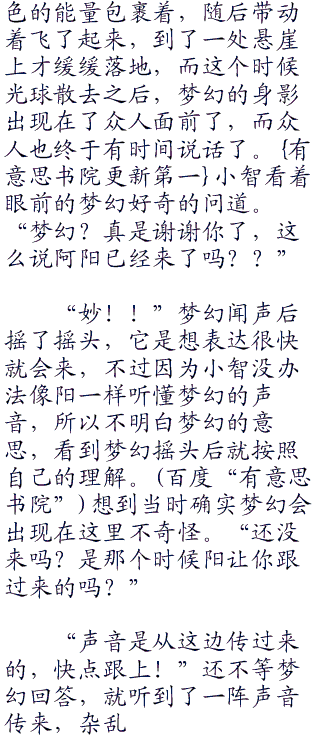 色的能量包裹着，随后带动
着飞了起来，到了一处悬崖
上才缓缓落地，而这个时候
光球散去之后，梦幻的身影
出现在了众人面前了，而众
人也终于有时间说话了。{有
意思书院更新第一}小智看着
眼前的梦幻好奇的问道。
“梦幻？真是谢谢你了，这
么说阿阳已经来了吗？？”
“妙！！”梦幻闻声后
摇了摇头，它是想表达很快
就会来，不过因为小智没办
法像阳一样听懂梦幻的声
音，所以不明白梦幻的意
思，看到梦幻摇头后就按照
自己的理解。(百度“有意思
书院”)想到当时确实梦幻会
出现在这里不奇怪。“还没
来吗？是那个时候阳让你跟
过来的吗？”
“声音是从这边传过来
的，快点跟上！”还不等梦
幻回答，就听到了一阵声音
传来，杂乱